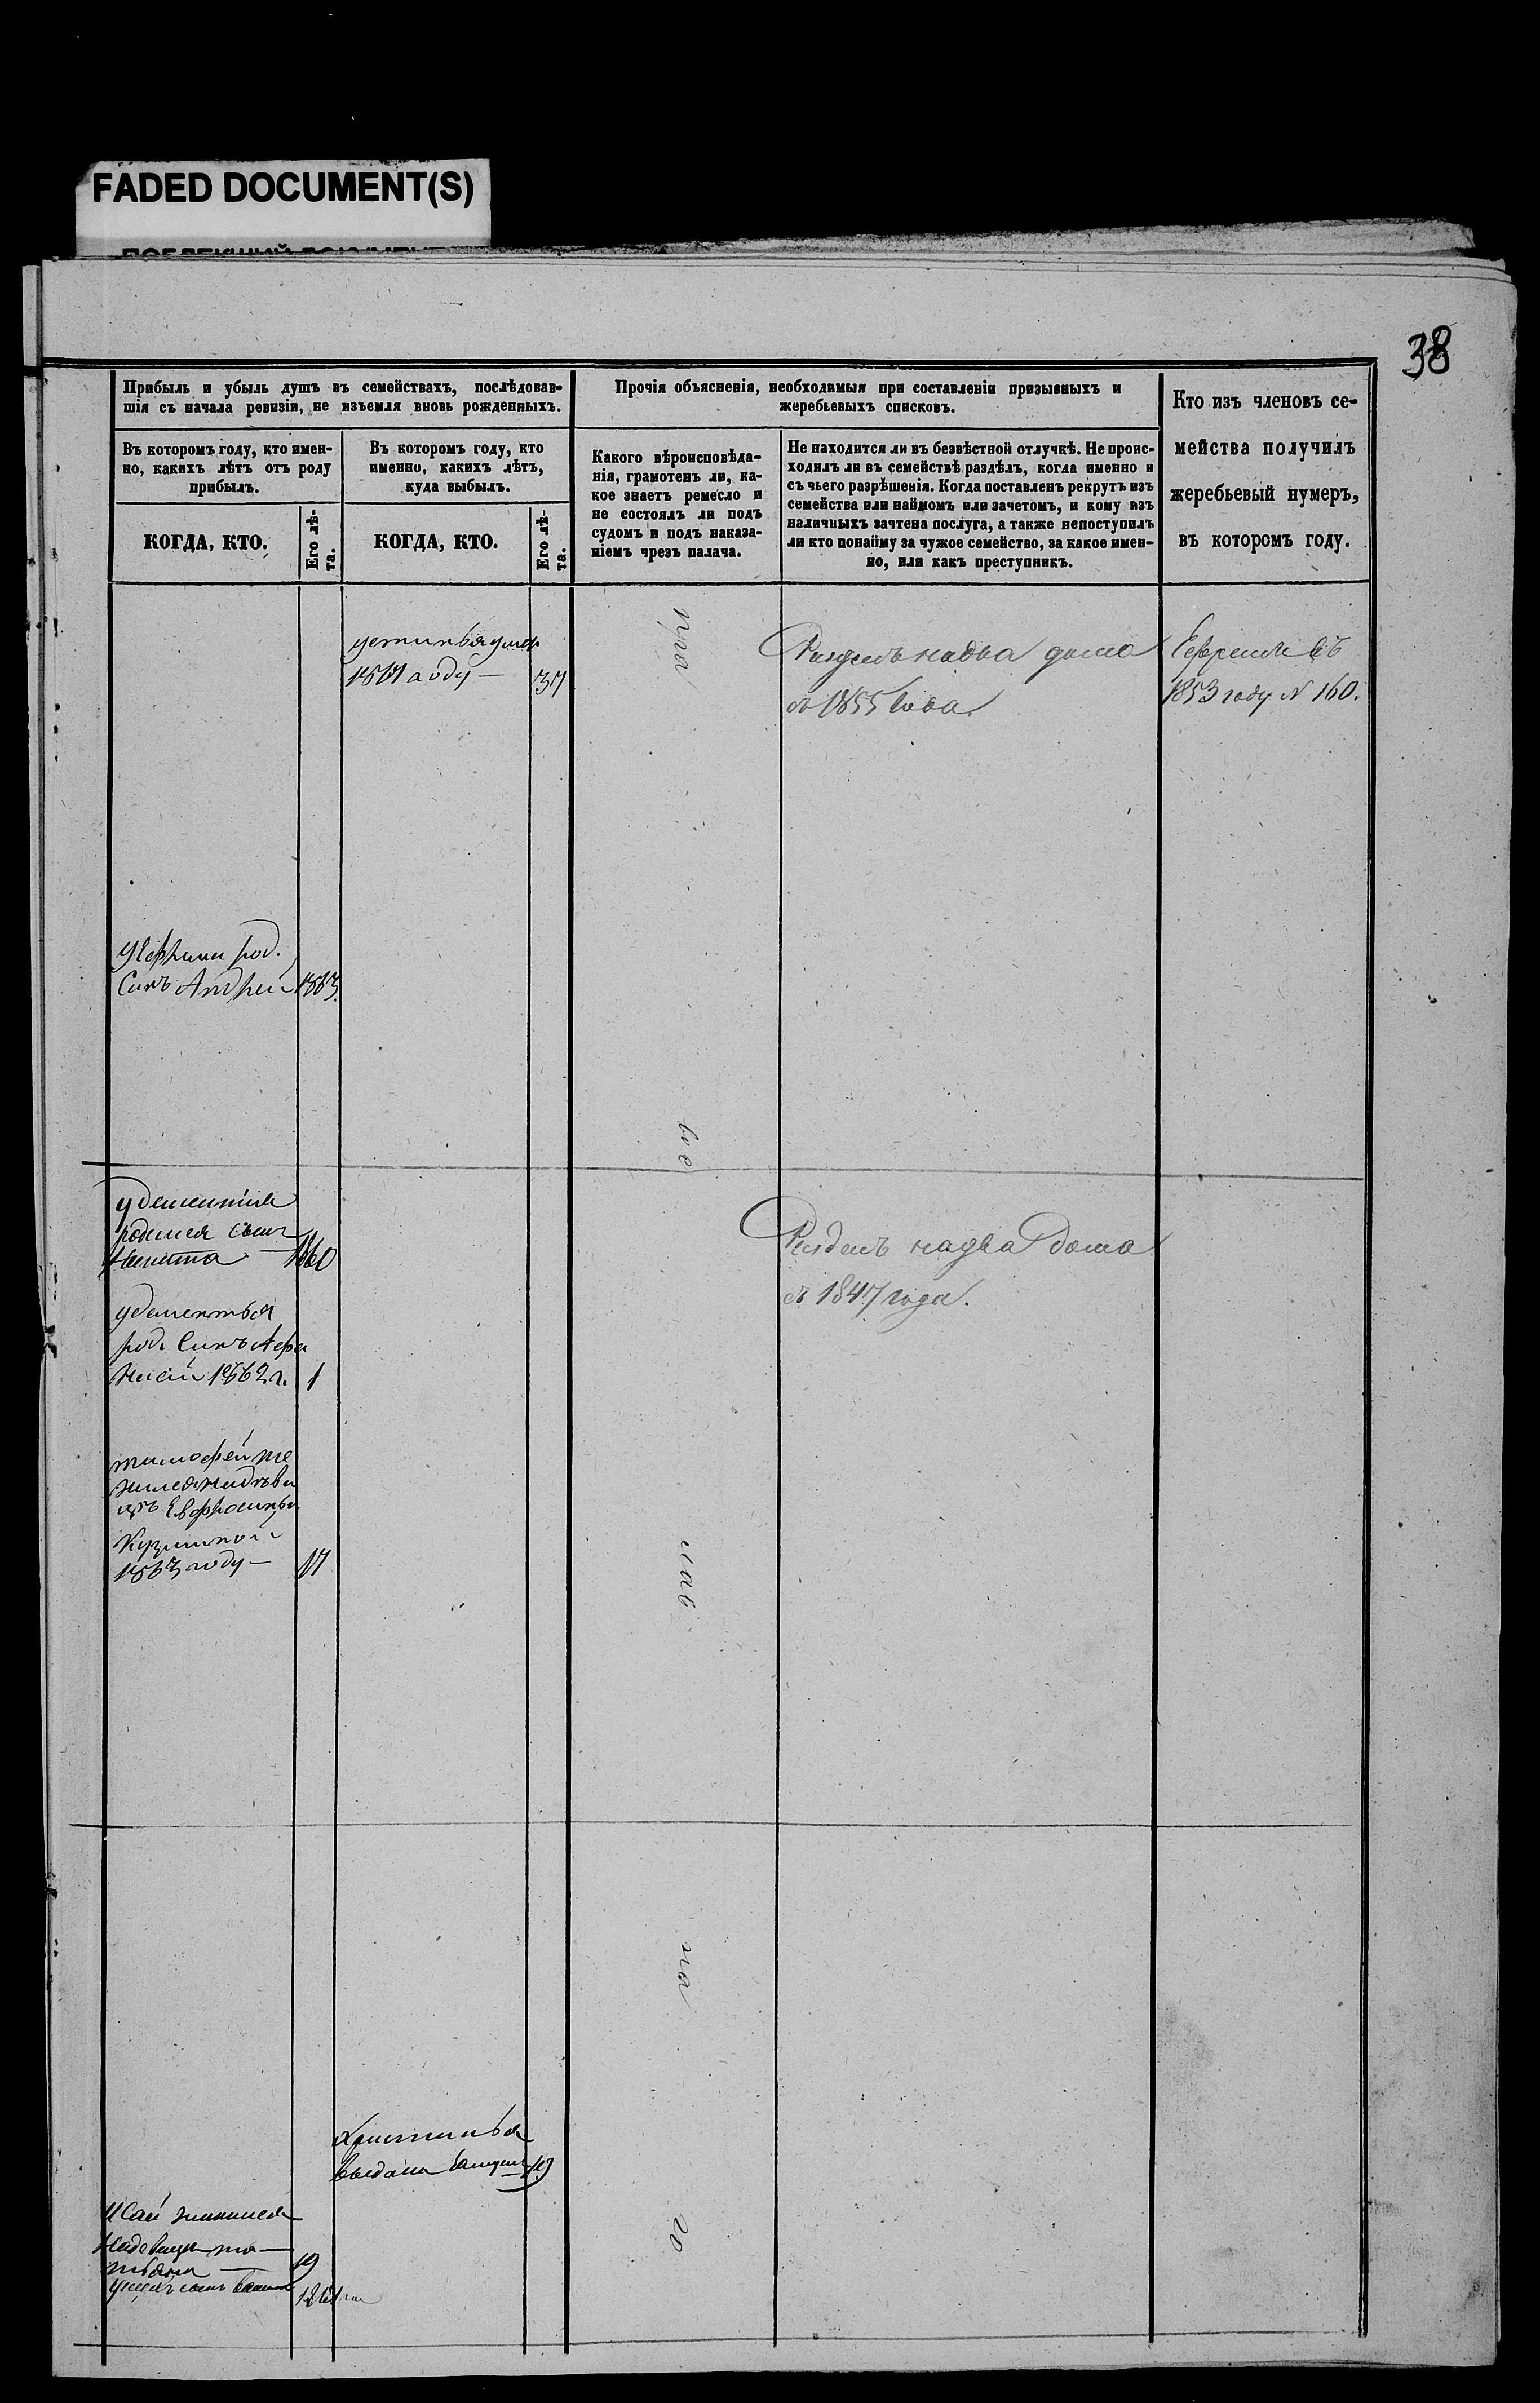 FADED DOCUMENT(S)
38
Прибыль и убыль душъ въ семействахъ, послѣдовав-
шія съ начала ревизіи, не изъемля вновь рожденныхъ.
Прочія объясненія, необходимыя при составленіи призывныхъ и
жеребьевыхъ списковъ.
Кто изъ членовъ се-
мейства получилъ
жеребьевый нумеръ,
въ которомъ году.
Въ которомъ году, кто имен-
но, какихъ лѣтъ отъ роду
прибылъ.
Въ которомъ году, кто
именно, какихъ лѣтъ,
куда выбылъ.
Какого вѣроисповѣда-
нія, грамотенъ ли, ка-
кое знаетъ ремесло и
не состоялъ ли подъ
судомъ и подъ наказа-
ніемъ чрезъ палача.
Не находится ли въ безвѣстной отлучкѣ. Не проис-
ходилъ ли въ семействѣ раздѣлъ, когда именно и
съ чьего разрѣшенія. Когда поставленъ рекрутъ изъ
семейства или наймомъ или зачетомъ, и кому изъ
наличныхъ зачтена послуга, а также непоступилъ
ли кто понайму за чужое семейство, за какое имен-
но, или какъ преступникъ.
КОГДА, КТО.
Его лѣ-
та.
КОГДА, КТО.
Его лѣ-
та.
году — 37
пра
Раздель надва дома
съ 1855 года
Ефремъ въ
1853 году N 160.
род.
Синъ Андрей 1863.
во
удементия
родился сынъ
Никита — 1860
Раздель надва дома
съ 1847 года.
удементья
род. Синъ Афа
насий 1862 г. 1
тимофей же
нился
Кузминой
1863 году — 17
лав
на
Христинья
выдана 19
го
Исай женился
19
1861